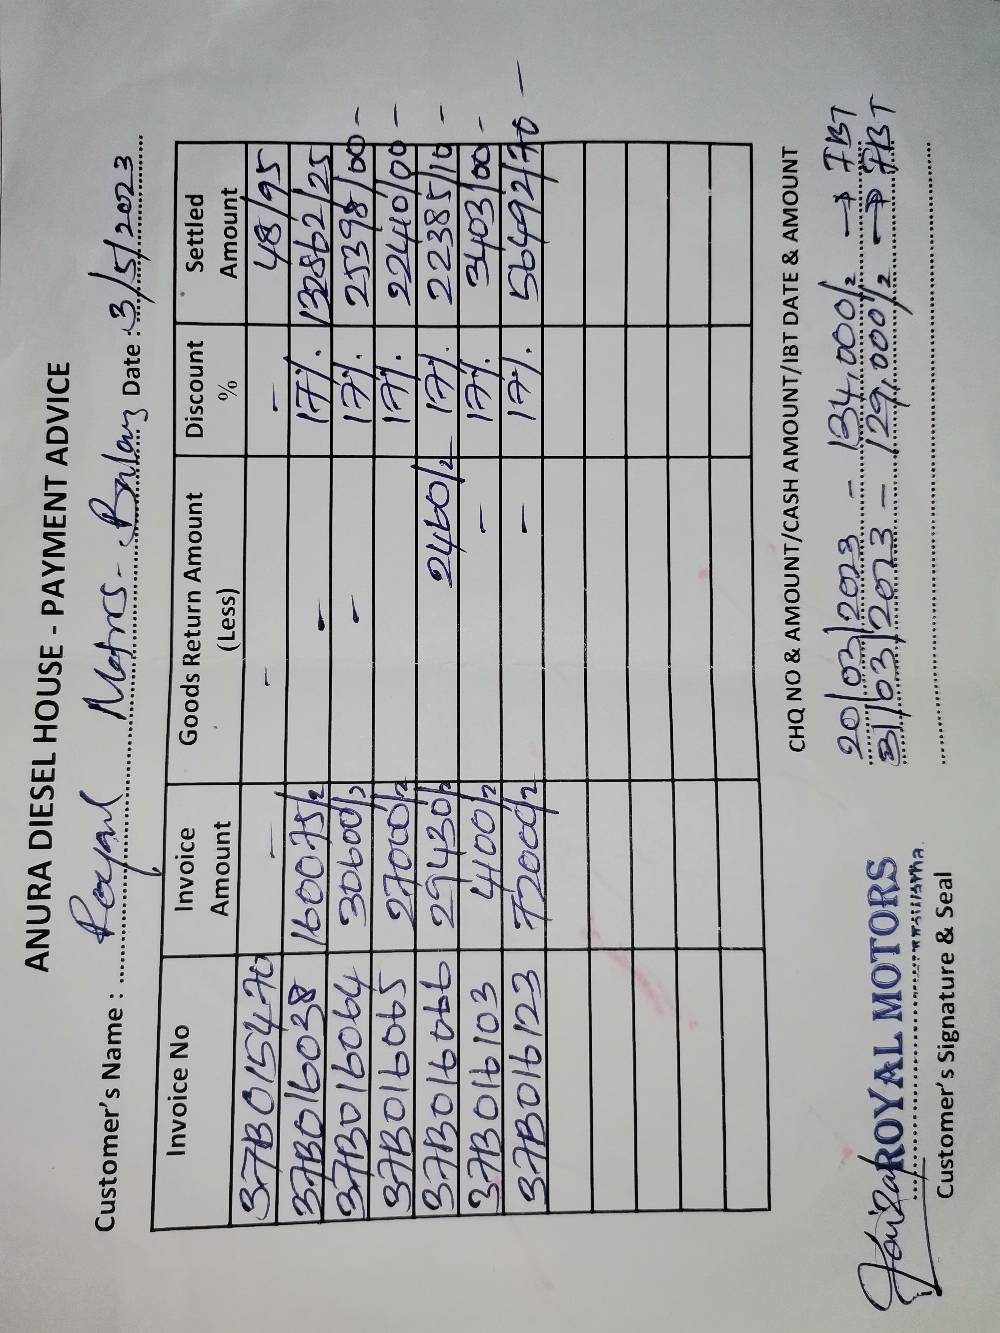 ANURA DIESEL HOUSE - PAYMENT ADVICE
Customer's Name : Royal Motors - Date : 3/5/2023
Invoice No Invoice Amount Goods Return Amount (Less) Discount % Settled Amount
37B015470 - - - 48/95
37B016038 160075/2 - 17% 132862/25
37B016064 30600/2 - 17% 25398/00 -
37B016065 27000/2 17% 22410/00 -
37B016066 29430/2 2460/2 17% 22385/10 -
37B016103 4100/2 - 17% 3403/00 -
37B016123 72000/2 - 17% 56492/70 -
CHQ NO & AMOUNT/CASH AMOUNT/IBT DATE & AMOUNT
20/03/2023 - 134,000/2 → FBT
31/03/2023 - 129,000/2 → FBT
ROYAL MOTORS
Customer's Signature & Seal